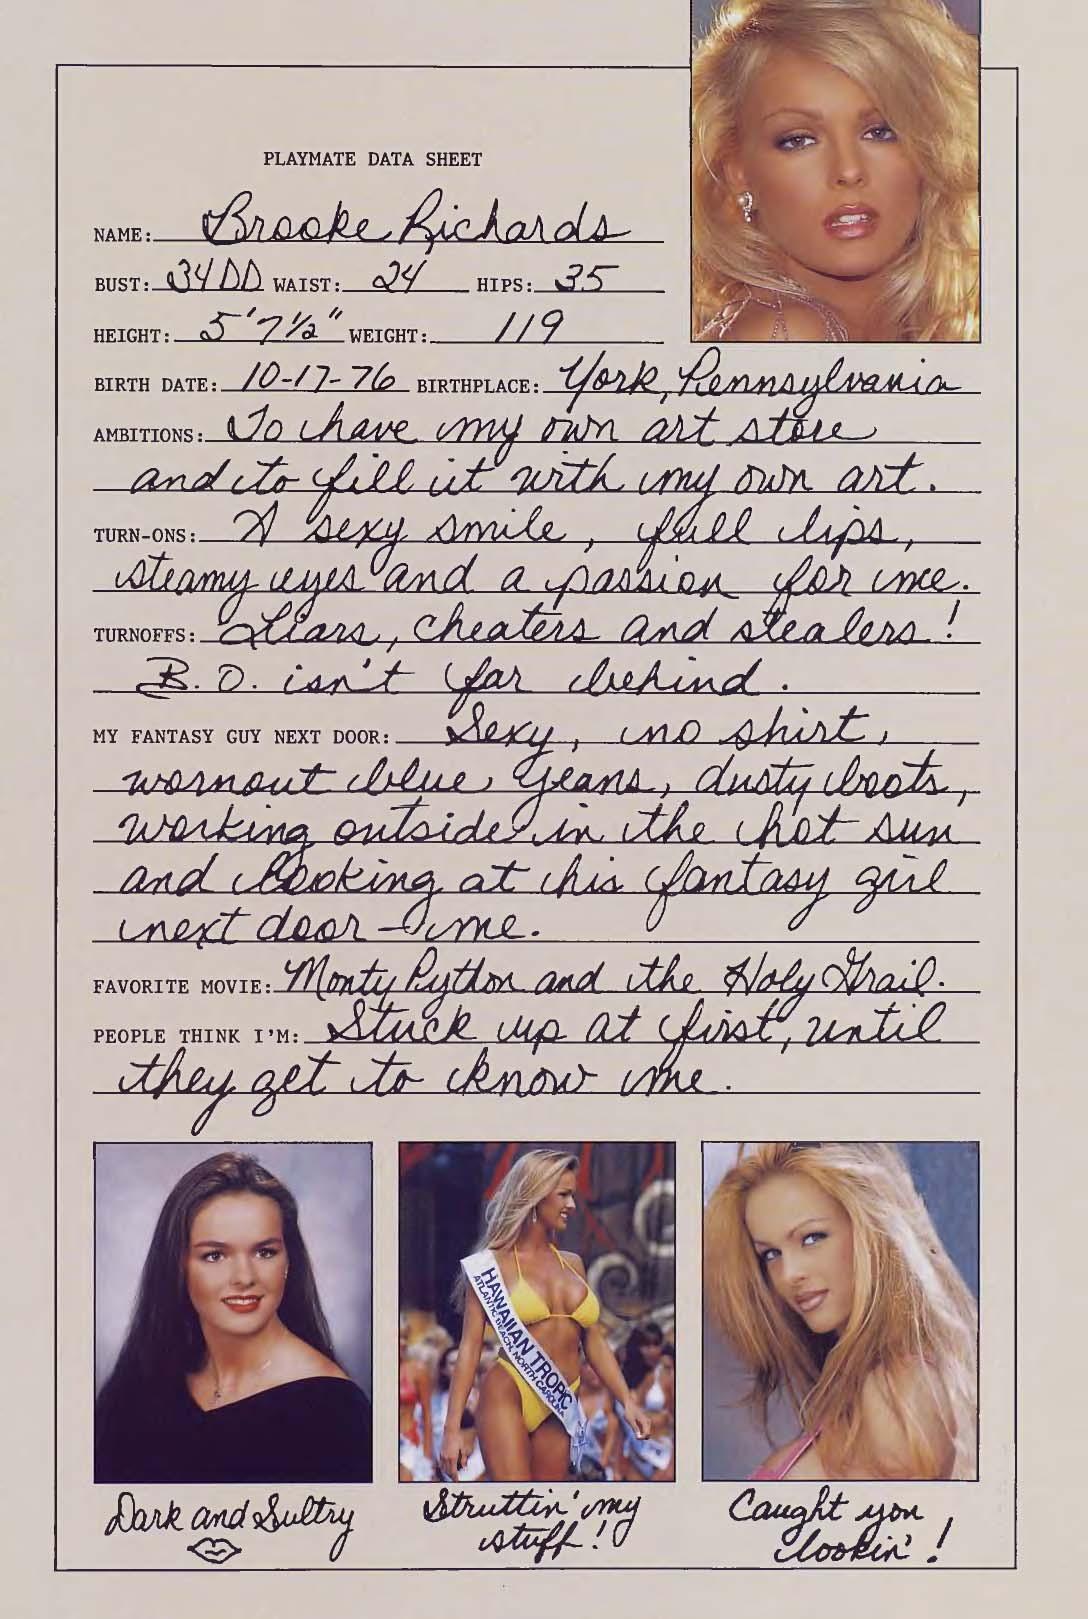 PLAYMATE DATA SHEET
NAME: Brooke Richards
BUST: 34DD WAIST: 24 HIPS: 35
HEIGHT: 5'7½" WEIGHT: 119
BIRTH DATE: 10-17-76 BIRTHPLACE: York, Pennsylvania
AMBITIONS: To have my own art store
and to fill it with my own art.
TURN-ONS: A sexy smile, full lips,
steamy eyes and a passion for me.
TURNOFFS: Liars, cheaters and stealers!
B.O. isn't far behind.
MY FANTASY GUY NEXT DOOR: Sexy, no shirt,
wornout blue jeans, dusty boots,
working outside in the hot sun
and looking at his fantasy girl
next door - me.
FAVORITE MOVIE: Monty Python and the Holy Grail.
PEOPLE THINK I'M: Stuck up at first, until
they get to know me.
HAWAIIAN TROPIC
ATLANTIC BEACH, NORTH CAROLINA
Dark and Sultry
Struttin' my
stuff!
Caught you
lookin'!